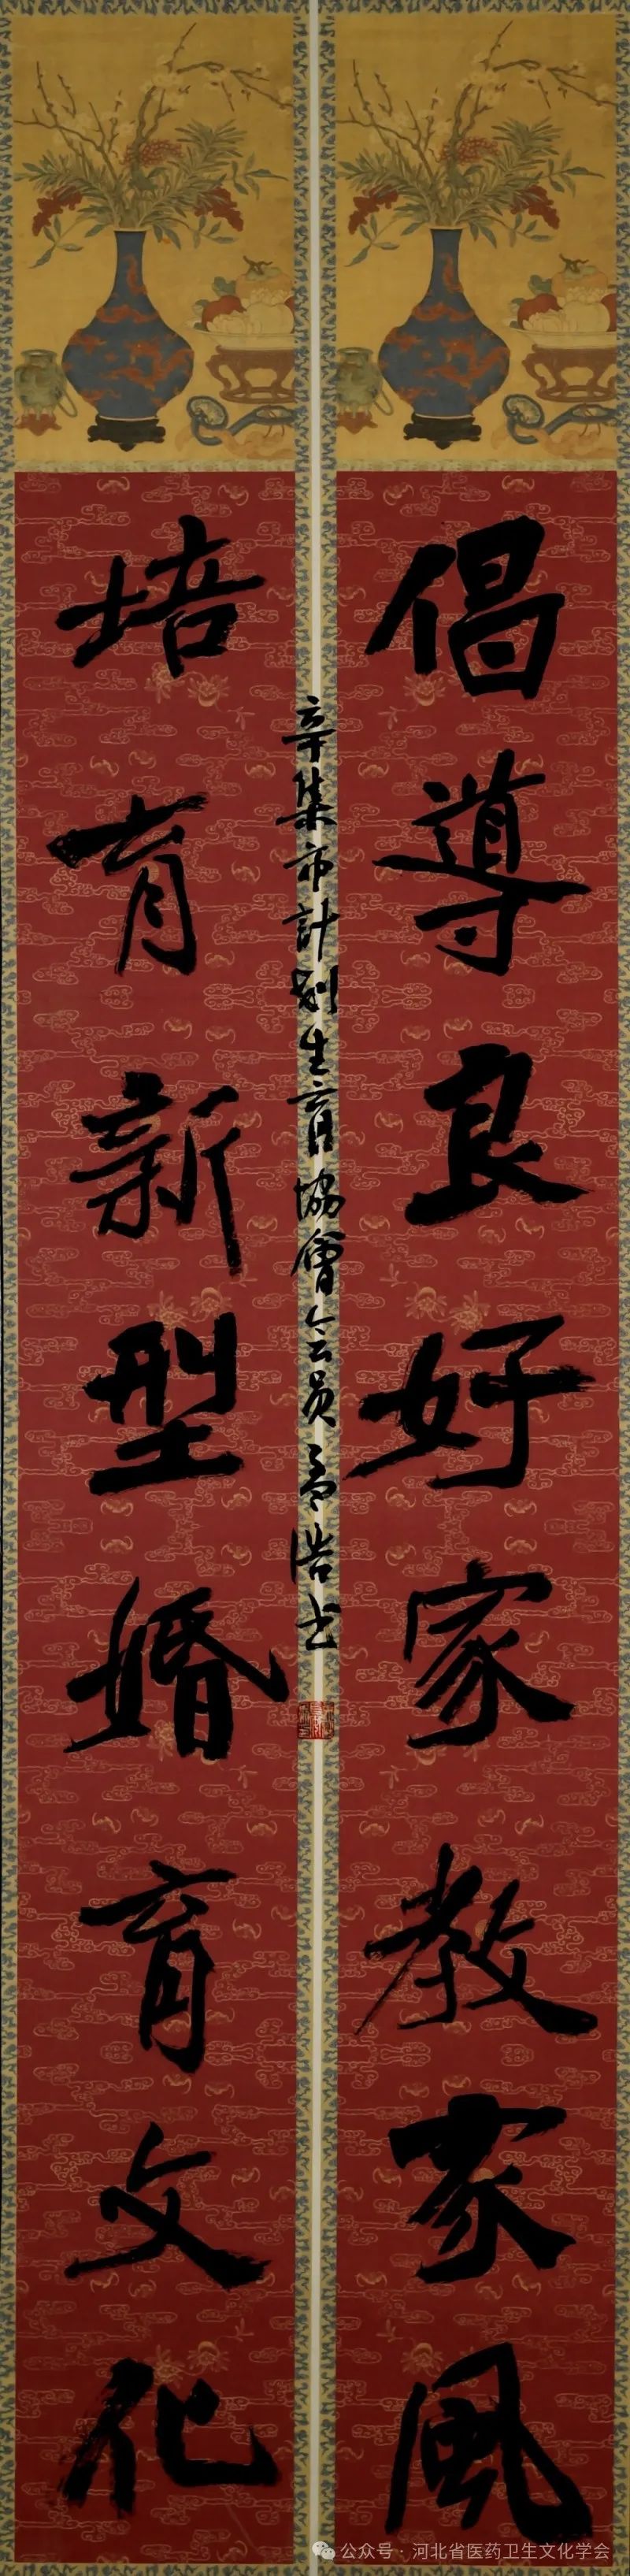 倡導良好家教家風
培育新型婚育文化
辛集市計划生育協會会员 浩书
公众号 · 河北省医药卫生文化学会